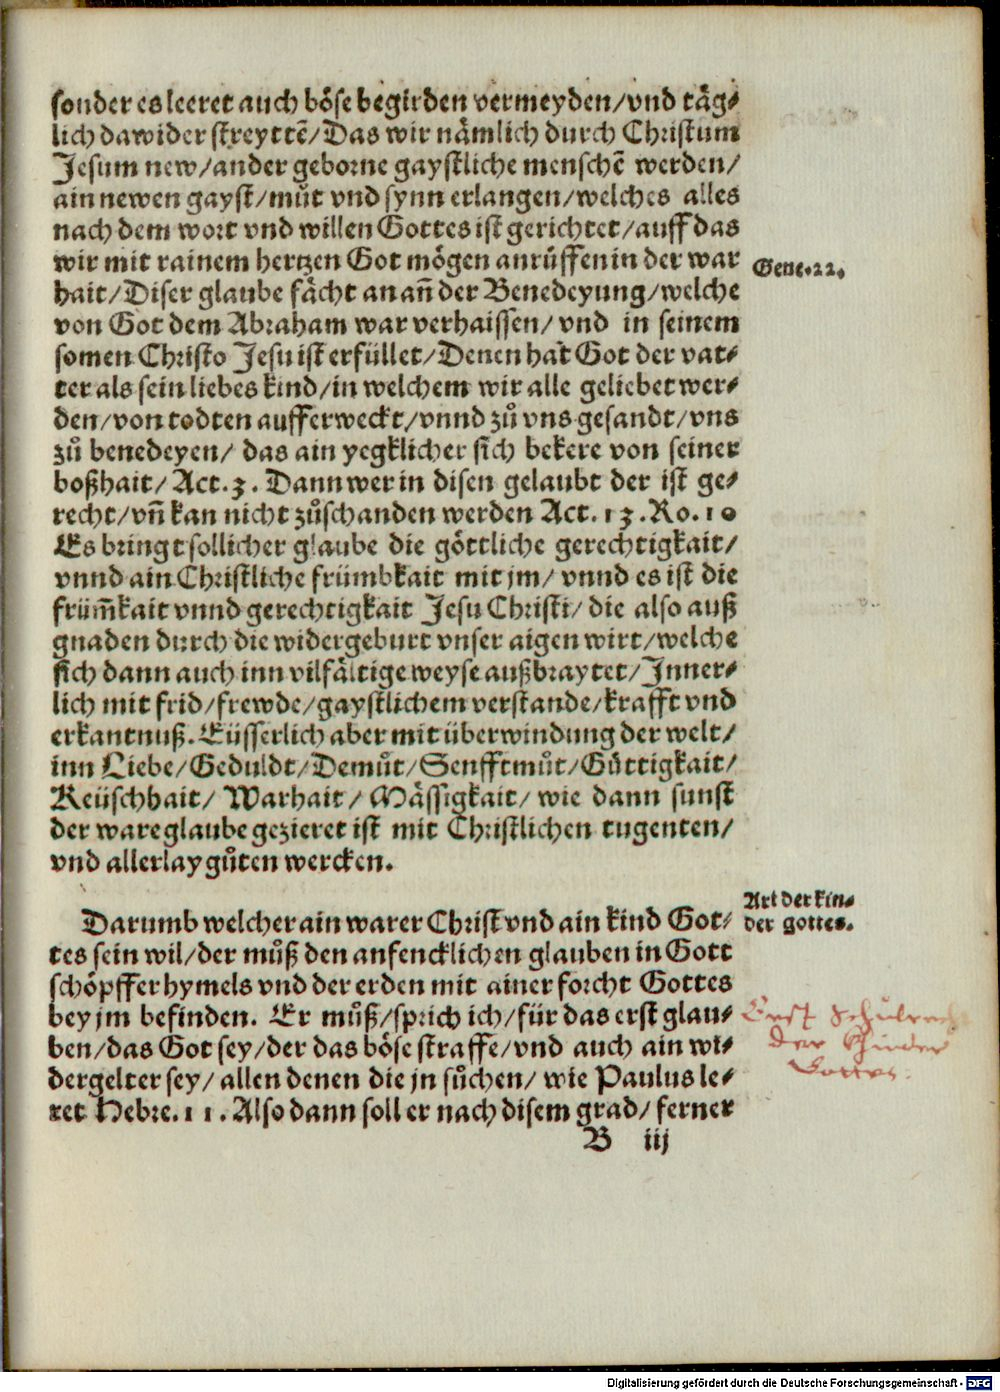 sonder es leeret auch böse begirden vermeyden/vnd täg⸗
lich dawider streyttē/Das wir nämlich durch Christum
Jesum new/ander geborne gaystliche menschē werden/
ain newen gayst/můt vnd synn erlangen/welches alles
nach dem wort vnd willen Gottes ist gerichtet/auff das
wir mit rainem hertzen Got mögen anrüffen in der war
hait/Diser glaube fächt an an̄ der Benedeyung/welche
von Got dem Abraham war verhaissen/vnd in seinem
somen Christo Jesu ist erfüllet/Denen hat Got der vat⸗
ter als sein liebes kind/in welchem wir alle geliebet wer⸗
den/von todten aufferweckt/vnnd zů vns gesandt/vns
zů benedeyen/ das ain yegklicher sich bekere von seiner
boßhait/ Act.3. Dann wer in disen gelaubt der ist ge⸗
recht/vn̄ kan nicht zůschanden werden Act.13.Ro.10
Es bringt sollicher glaube die göttliche gerechtigkait/
vnnd ain Christliche frümbkait mit jm/ vnnd es ist die
früm̄kait vnnd gerechtigkait Jesu Christi/ die also auß
gnaden durch die widergeburt vnser aigen wirt/welche
sich dann auch inn vilfältige weyse außbraytet/Inner⸗
lich mit frid/frewde/gaystlichem verstande/krafft vnd
erkantnuß. Eüsserlich aber mit überwindung der welt/
inn Liebe/Geduldt/Demůt/Senfftmůt/Güttigkait/
Keüschhait/ Warhait/ Mässigkait/ wie dann sunst
der ware glaube gezieret ist mit Christlichen tugenten/
vnd allerlay gůten wercken.
Gene.22.
Darumb welcher ain warer Christ vnd ain kind Got⸗
tes sein wil/der můß den anfencklichen glauben in Gott
schöpffer hymels vnd der erden mit ainer forcht Gottes
bey jm befinden. Er můß/sprich ich/für das erst glau⸗
ben/das Got sey/der das böse straffe/vnd auch ain wi⸗
dergelter sey/ allen denen die jn sůchen/ wie Paulus le⸗
ret Hebre.11. Also dann soll er nach disem grad/ ferner
Art der kin⸗
der gottes.
der Kinder
Gottes.
B iij
Digitalisierung gefördert durch die Deutsche Forschungsgemeinschaft - DFG